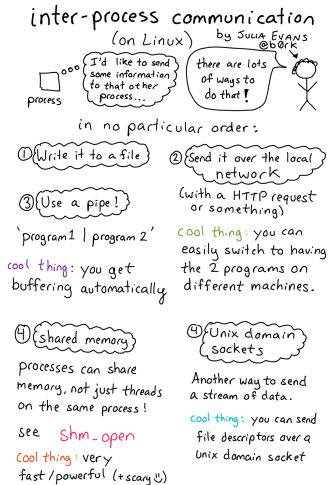 inter-process communication
(on Linux)
by JULIA EVANS
@b0rk
I'd like to send
some information
to that other
process...
process
there are lots
of ways to
do that!
in no particular order:
① Write it to a file
② Send it over the local
network
(with a HTTP request
or something)
cool thing: you can
easily switch to having
the 2 programs on
different machines.
③ Use a pipe!
'program1 | program 2'
cool thing: you get
buffering automatically
④ shared memory
processes can share
memory, not just threads
on the same process!
see shm_open
cool thing: very
fast/powerful (+scary☺)
④ Unix domain
sockets
Another way to send
a stream of data.
cool thing: you can send
file descriptors over a
unix domain socket